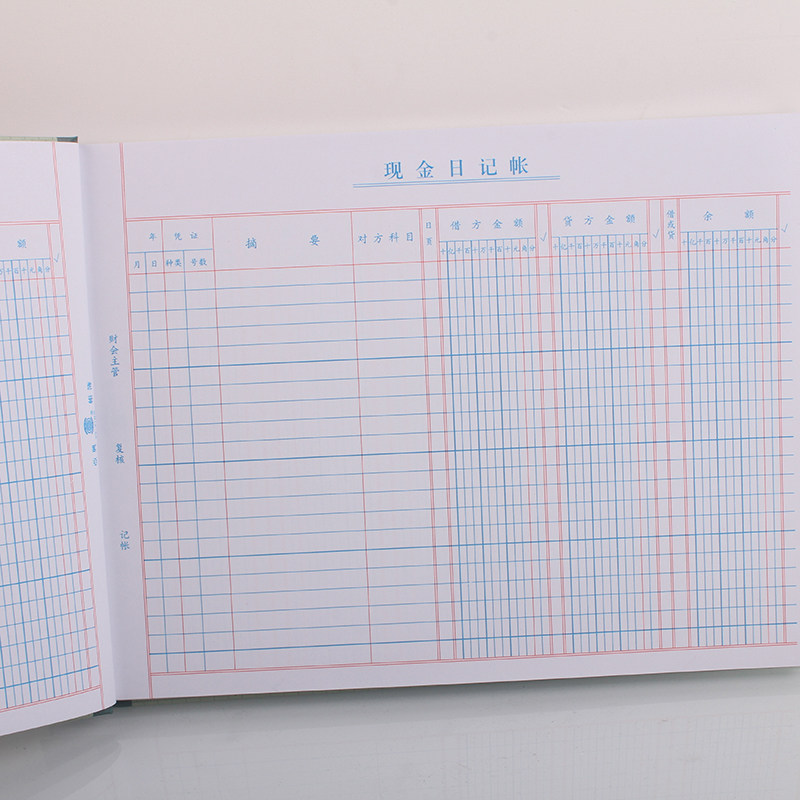 现金日记帐
年 凭证 摘要 对方科目 日页 借方金额 √ 贷方金额 √ 借或贷 余额 √
月 日 种类 号数 十亿千百十万千百十元角分 十亿千百十万千百十元角分 十亿千百十万千百十元角分
财会主管
复核
记帐
额 √
万千百十元角分